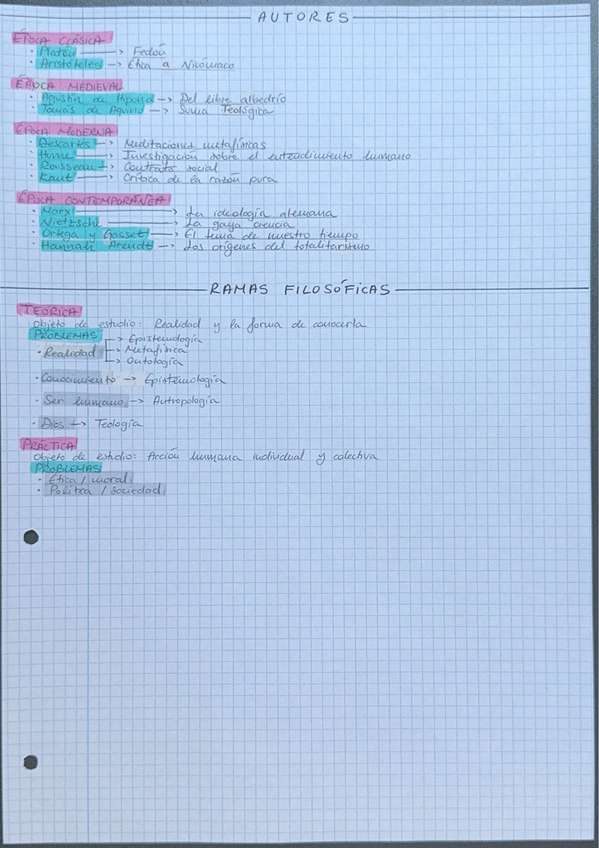 AUTORES
ÉPOCA CLÁSICA
· Platón → Fedón
· Aristóteles → Ética a Nicómaco
ÉPOCA MEDIEVAL
· Agustín de Hipona → Del libre albedrío
· Tomás de Aquino → Suma Teológica
ÉPOCA MODERNA
· Descartes → Meditaciones metafísicas
· Hume → Investigación sobre el entendimiento humano
· Rousseau → Contrato social
· Kant → Crítica de la razón pura
ÉPOCA CONTEMPORÁNEA
· Marx → La ideología alemana
· Nietzsche → La gaya ciencia
· Ortega y Gasset → El tema de nuestro tiempo
· Hannah Arendt → Los orígenes del totalitarismo
RAMAS FILOSÓFICAS
TEÓRICA
Objeto de estudio: Realidad y la forma de conocerla
PROBLEMAS
→ Epistemología
· Realidad → Metafísica
→ Ontología
· Conocimiento → Epistemología
· Ser humano → Antropología
· Dios → Teología
PRÁCTICA
Objeto de estudio: Acción humana individual y colectiva
PROBLEMAS
· Ética / moral
· Política / sociedad